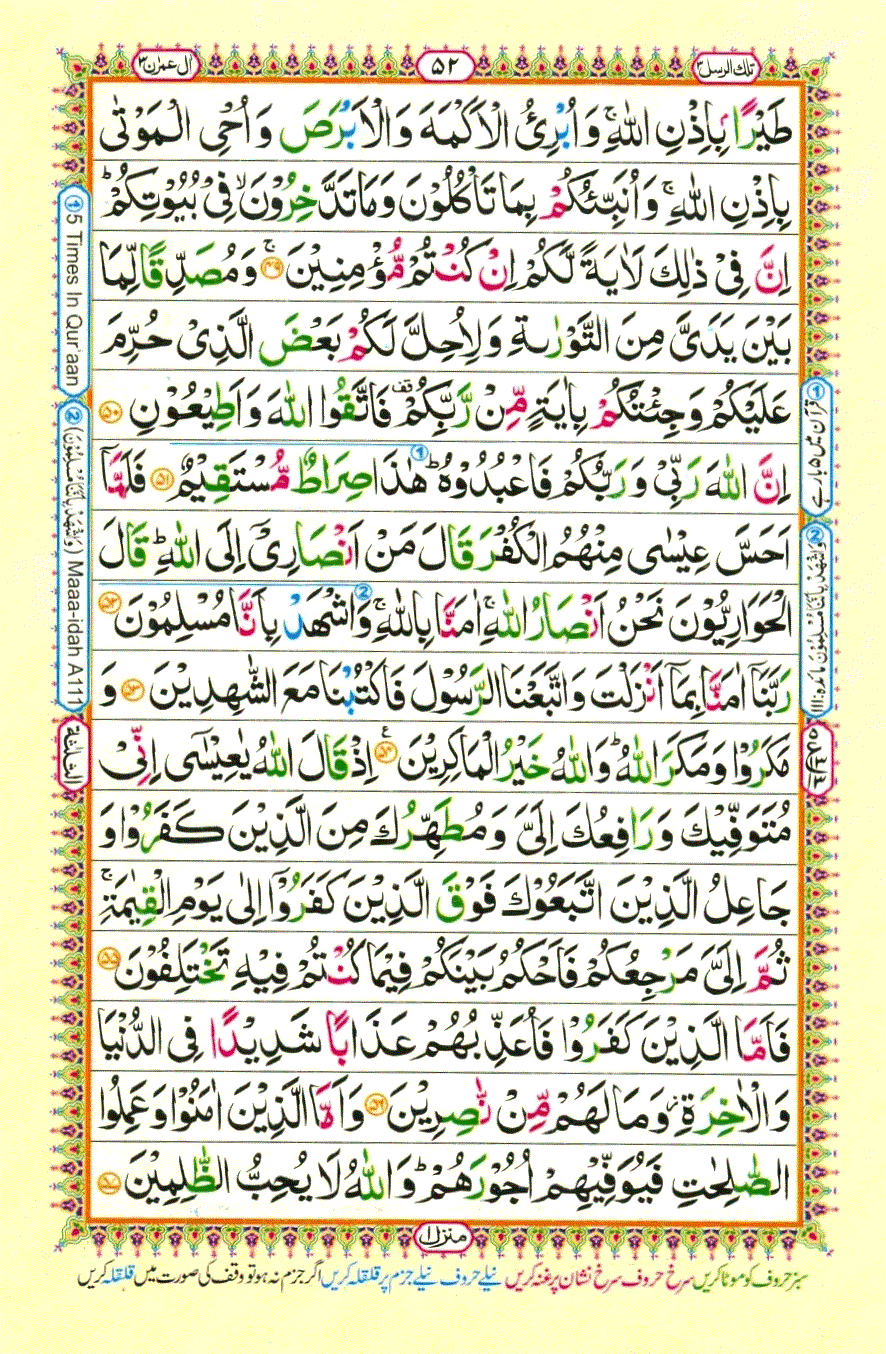 تلك الرسل ٣
٥٢
ال عمرٰن ٣
طَيْرًۢا بِاِذْنِ اللّٰهِ ۚ وَاُبْرِئُ الْاَكْمَهَ وَالْاَبْرَصَ وَاُحْىِ الْمَوْتٰى
بِاِذْنِ اللّٰهِ ۚ وَاُنَبِّئُكُمْ بِمَا تَاْكُلُوْنَ وَمَا تَدَّخِرُوْنَ ۙ فِىْ بُيُوْتِكُمْ ؕ
اِنَّ فِىْ ذٰلِكَ لَاٰيَةً لَّكُمْ اِنْ كُنْتُمْ مُّؤْمِنِيْنَ ۚ ﴿۴۹﴾ وَمُصَدِّقًا لِّمَا
بَيْنَ يَدَىَّ مِنَ التَّوْرٰٮةِ وَلِاُحِلَّ لَكُمْ بَعْضَ الَّذِىْ حُرِّمَ
عَلَيْكُمْ وَجِئْتُكُمْ بِاٰيَةٍ مِّنْ رَّبِّكُمْ قف فَاتَّقُوا اللّٰهَ وَاَطِيْعُوْنِ ﴿۵۰﴾
اِنَّ اللّٰهَ رَبِّىْ وَرَبُّكُمْ فَاعْبُدُوْهُ ؕ ① هٰذَا صِرَاطٌ مُّسْتَقِيْمٌ ﴿۵۱﴾ فَلَمَّاۤ
اَحَسَّ عِيْسٰى مِنْهُمُ الْكُفْرَ قَالَ مَنْ اَنْصَارِىْۤ اِلَى اللّٰهِ ؕ قَالَ
الْحَوَارِيُّوْنَ نَحْنُ اَنْصَارُ اللّٰهِ ۚ اٰمَنَّا بِاللّٰهِ ۚ ② وَاشْهَدْ بِاَنَّا مُسْلِمُوْنَ ﴿۵۲﴾
رَبَّنَاۤ اٰمَنَّا بِمَاۤ اَنْزَلْتَ وَاتَّبَعْنَا الرَّسُوْلَ فَاكْتُبْنَا مَعَ الشّٰهِدِيْنَ ﴿۵۳﴾ وَ
مَكَرُوْا وَمَكَرَ اللّٰهُ ؕ وَاللّٰهُ خَيْرُ الْمَاكِرِيْنَ ﴿۵۴﴾ اِذْ قَالَ اللّٰهُ يٰعِيْسٰۤى اِنِّىْ
مُتَوَفِّيْكَ وَرَافِعُكَ اِلَىَّ وَمُطَهِّرُكَ مِنَ الَّذِيْنَ كَفَرُوْا وَ
جَاعِلُ الَّذِيْنَ اتَّبَعُوْكَ فَوْقَ الَّذِيْنَ كَفَرُوْۤا اِلٰى يَوْمِ الْقِيٰمَةِ ۚ
ثُمَّ اِلَىَّ مَرْجِعُكُمْ فَاَحْكُمُ بَيْنَكُمْ فِيْمَا كُنْتُمْ فِيْهِ تَخْتَلِفُوْنَ ﴿۵۵﴾
فَاَمَّا الَّذِيْنَ كَفَرُوْا فَاُعَذِّبُهُمْ عَذَابًا شَدِيْدًا فِى الدُّنْيَا
وَالْاٰخِرَةِ ۫ وَمَا لَهُمْ مِّنْ نّٰصِرِيْنَ ﴿۵۶﴾ وَاَمَّا الَّذِيْنَ اٰمَنُوْا وَعَمِلُوا
الصّٰلِحٰتِ فَيُوَفِّيْهِمْ اُجُوْرَهُمْ ؕ وَاللّٰهُ لَا يُحِبُّ الظّٰلِمِيْنَ ﴿۵۷﴾
① 5 Times In Qur'aan
② (وَاشْهَدْ بِاَنَّنَا مُسْلِمُوْنَ) Maaa-idah A111
الثلٰثة
① قرآن میں ۵ بار ہے
② وَاشْهَدْ بِاَنَّنَا مُسْلِمُوْنَ مائدہ:۱۱۱
منزل ١
سبز حروف کو موٹا کریں سرخ حروف سرخ نشان پر غنہ کریں نیلے حروف نیلے جزم پر قلقلہ کریں اگر جزم نہ ہو تو وقف کی صورت میں قلقلہ کریں